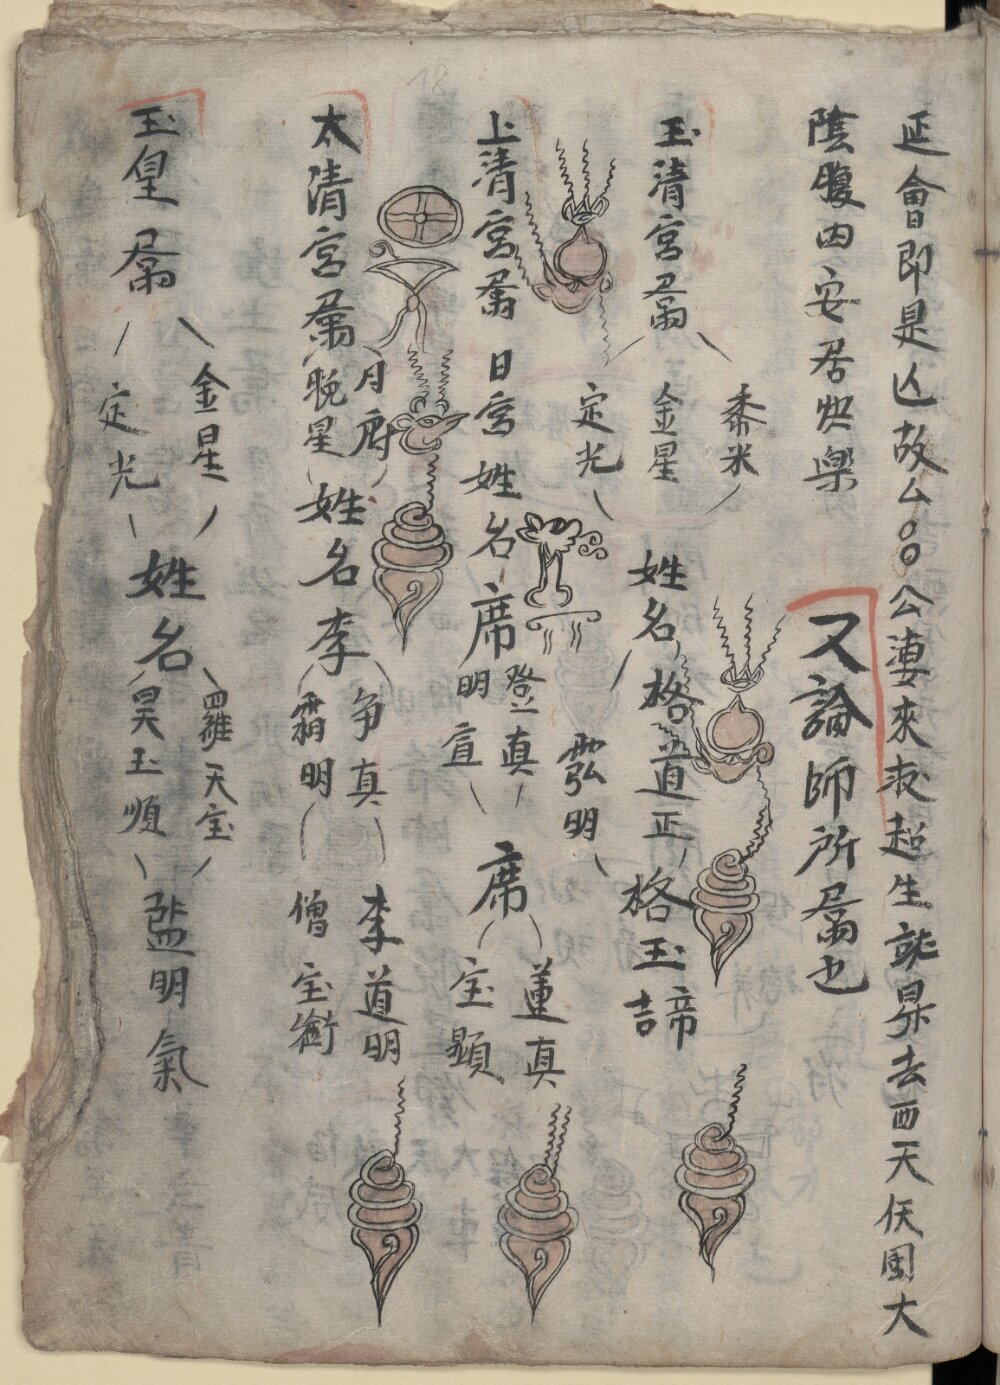 延會即是亾故厶〇〇公連來求超生就昇去西天仸国大
陰腹内安居快樂
又論師所屬也
玉清宮屬
黍米
金星
定光
姓名
格道正
弘明
格玉諦
上清宮屬
日宮
姓名
席
登真
明宣
席
蓮真
宝顯
太清宮屬
月府
晚星
姓名李
争真
霜明
李道明
僧宝
玉皇屬
金星
定光
姓名
羅天宝
昊玉順
明氣